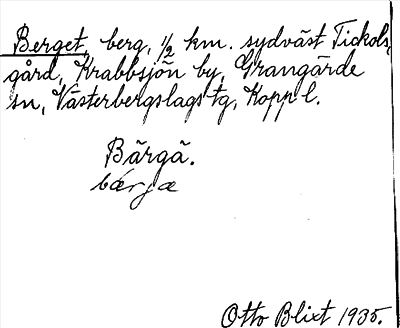 Berget, berg, 1/2 km. sydväst Tickols,
gård, Krabbsjön by, Grangärde
sn, Västerbergslags tg, Kopp l.
Bärgä.
bærjæ
Otto Blixt 1935.